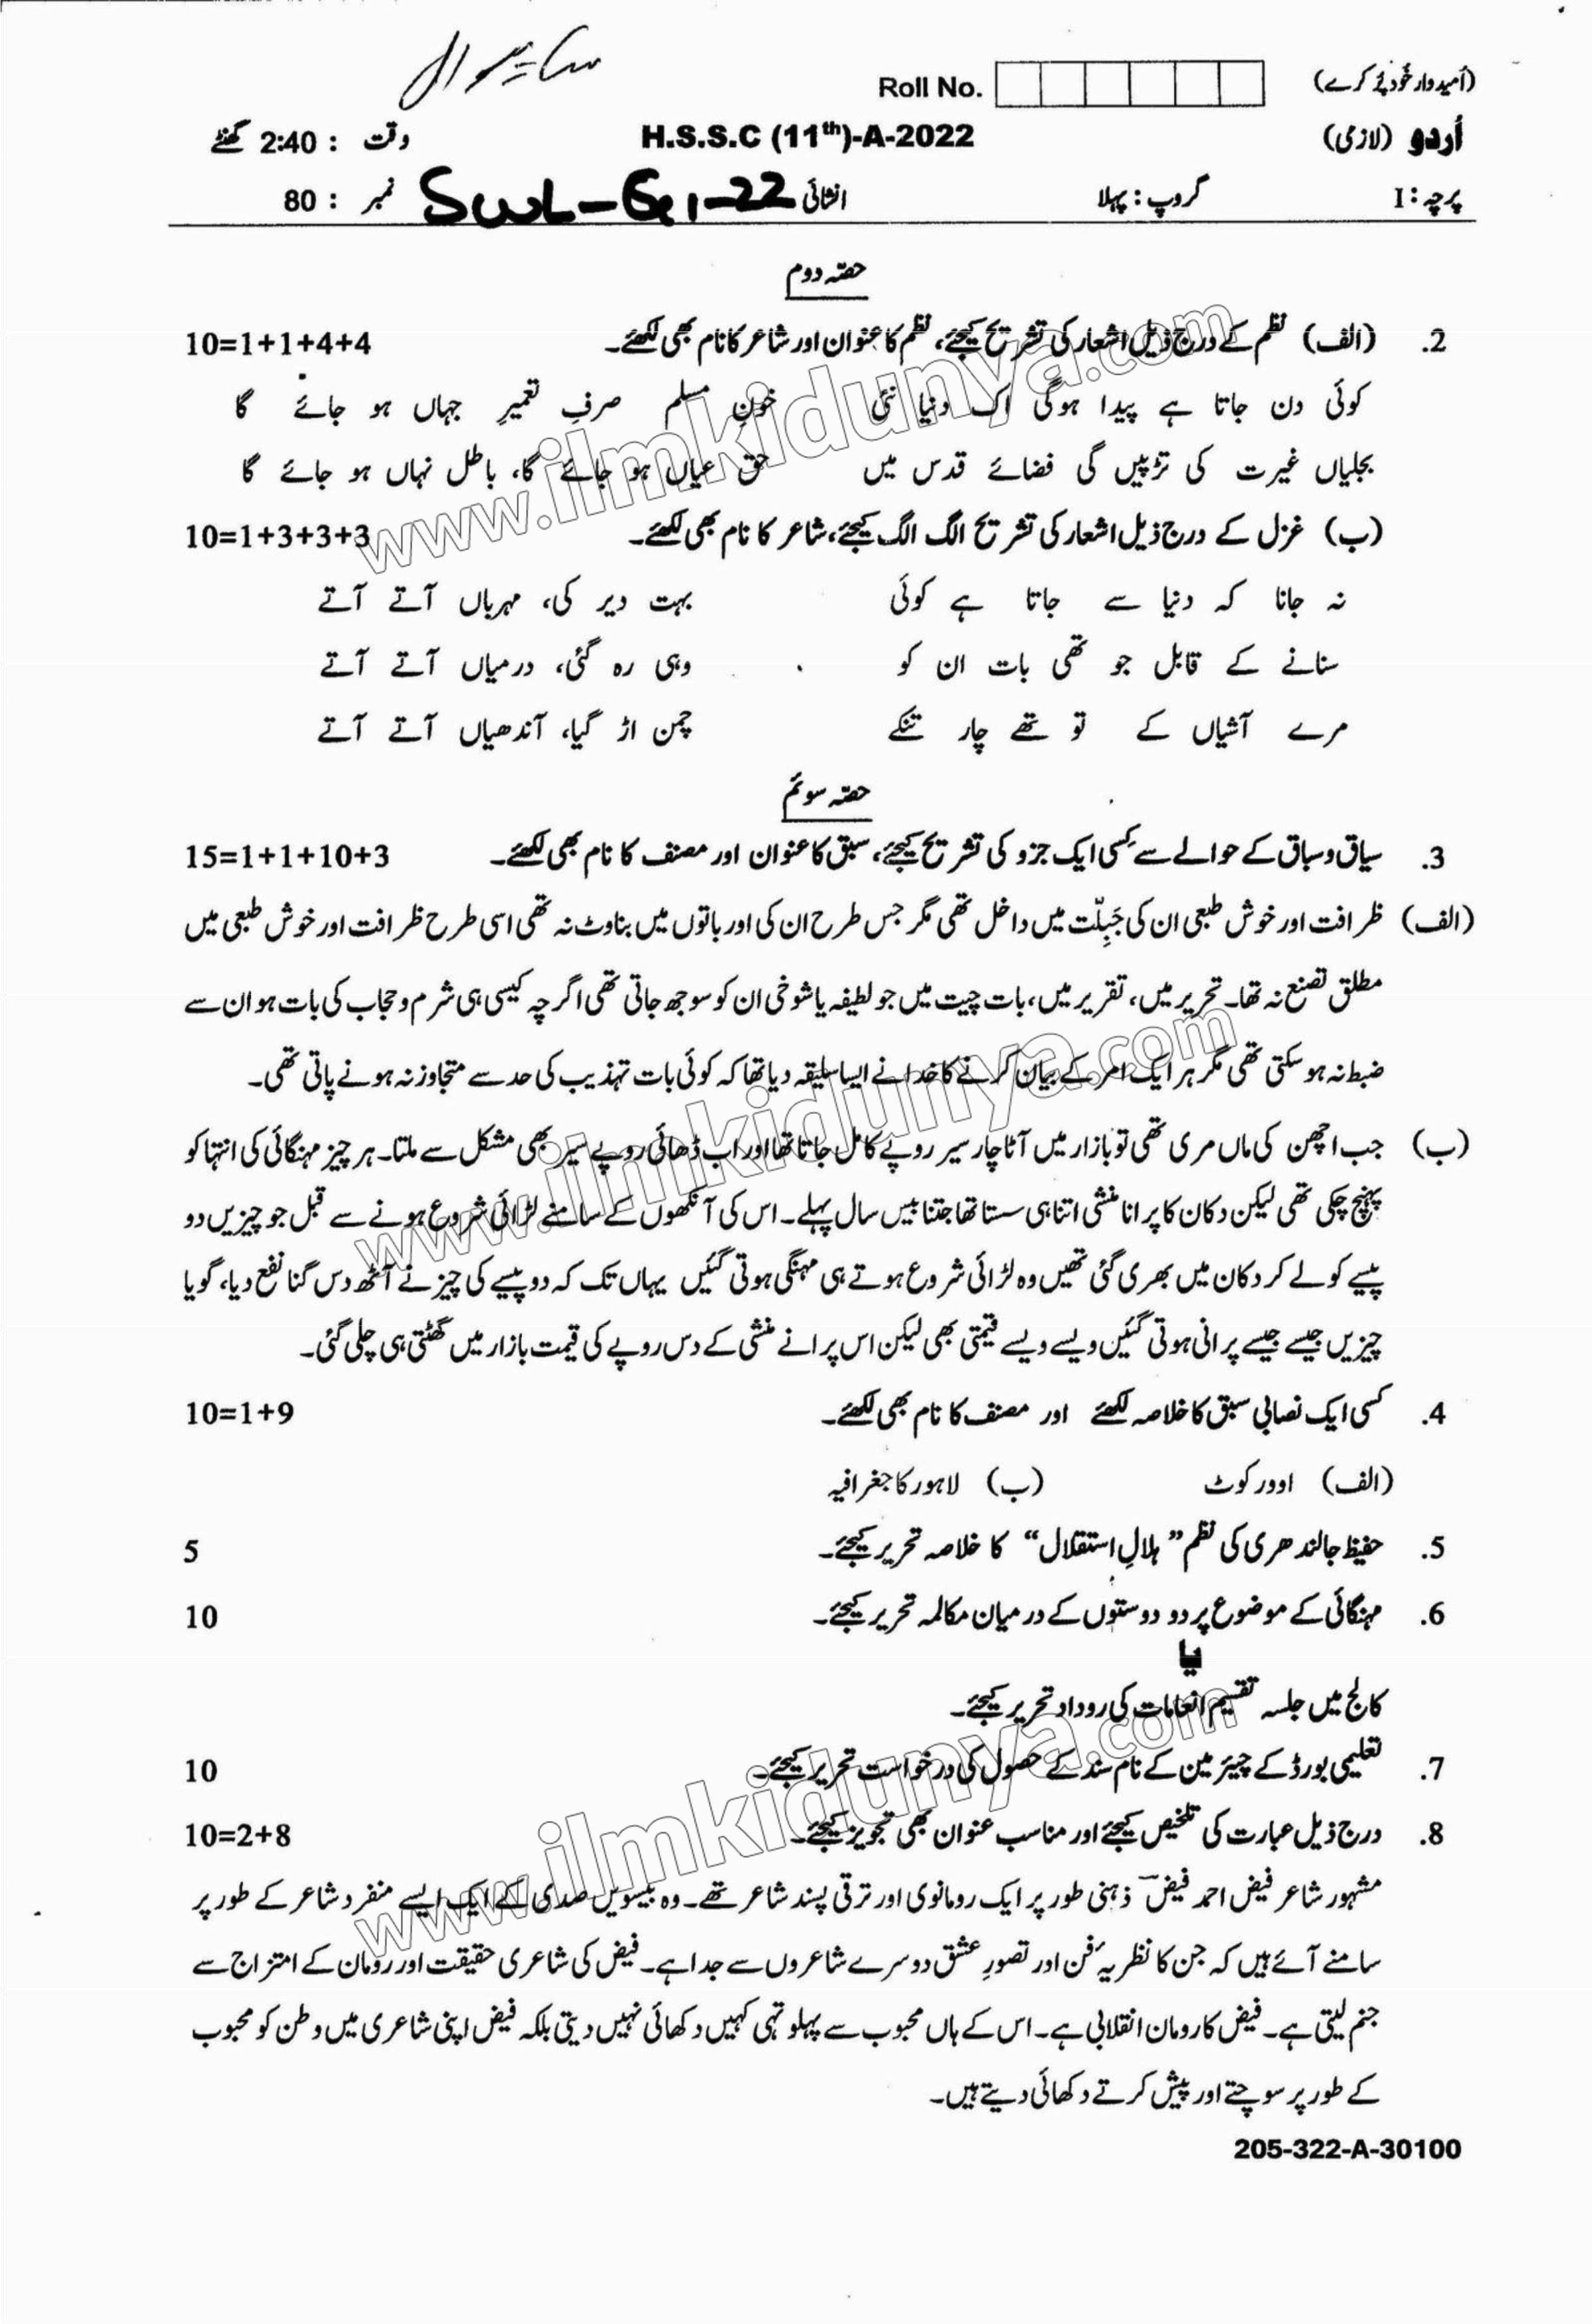 ساہیوال
Roll No. (اُمیدوار خود پُر کرے)
اُردو (لازمی) H.S.S.C (11th)-A-2022 وقت : 2:40 گھنٹے
پرچہ : I گروپ : پہلا انشائی SWL-G1-22 نمبر : 80
حصّہ دوم
2. (الف) نظم کے درج ذیل اشعار کی تشریح کیجئے، نظم کا عنوان اور شاعر کا نام بھی لکھئے۔ 10=1+1+4+4
کوئی دن جاتا ہے پیدا ہوگی اک دنیا نئی خونِ مسلم صرفِ تعمیرِ جہاں ہو جائے گا
بجلیاں غیرت کی تڑپیں گی فضائے قدس میں حق عیاں ہو جائے گا، باطل نہاں ہو جائے گا
(ب) غزل کے درج ذیل اشعار کی تشریح الگ الگ کیجئے، شاعر کا نام بھی لکھئے۔ 10=1+3+3+3
نہ جانا کہ دنیا سے جاتا ہے کوئی بہت دیر کی، مہرباں آتے آتے
سنانے کے قابل جو تھی بات ان کو وہی رہ گئی، درمیاں آتے آتے
مرے آشیاں کے تو تھے چار تنکے چمن اڑ گیا، آندھیاں آتے آتے
حصّہ سوئم
3. سیاق و سباق کے حوالے سے کِسی ایک جزو کی تشریح کیجئے، سبق کا عنوان اور مصنف کا نام بھی لکھئے۔ 15=1+1+10+3
(الف) ظرافت اور خوش طبعی ان کی جَبِلّت میں داخل تھی مگر جس طرح ان کی اور باتوں میں بناوٹ نہ تھی اسی طرح ظرافت اور خوش طبعی میں
مطلق تصنع نہ تھا۔ تحریر میں، تقریر میں، بات چیت میں جو لطیفہ یا شوخی ان کو سوجھ جاتی تھی اگرچہ کیسی ہی شرم و حجاب کی بات ہو ان سے
ضبط نہ ہو سکتی تھی مگر ہر ایک امر کے بیان کرنے کا خدا نے ایسا سلیقہ دیا تھا کہ کوئی بات تہذیب کی حد سے متجاوز نہ ہونے پاتی تھی۔
(ب) جب اچھن کی ماں مری تھی تو بازار میں آٹا چار سیر روپے کا مل جاتا تھا اور اب ڈھائی روپے سیر بھی مشکل سے ملتا۔ ہر چیز مہنگائی کی انتہا کو
پہنچ چکی تھی لیکن دکان کا پرانا منشی اتنا ہی سستا تھا جتنا بیس سال پہلے۔ اس کی آنکھوں کے سامنے لڑائی شروع ہونے سے قبل جو چیزیں دو
پیسے کو لے کر دکان میں بھری گئی تھیں وہ لڑائی شروع ہوتے ہی مہنگی ہوتی گئیں یہاں تک کہ دو پیسے کی چیز نے آٹھ دس گنا نفع دیا، گویا
چیزیں جیسے جیسے پرانی ہوتی گئیں ویسے ویسے قیمتی بھی لیکن اس پرانے منشی کے دس روپے کی قیمت بازار میں گھٹتی ہی چلی گئی۔
4. کسی ایک نصابی سبق کا خلاصہ لکھئے اور مصنف کا نام بھی لکھئے۔ 10=1+9
(الف) اوورکوٹ (ب) لاہور کا جغرافیہ
5. حفیظ جالندھری کی نظم ”ہلالِ استقلال“ کا خلاصہ تحریر کیجئے۔ 5
6. مہنگائی کے موضوع پر دو دوستوں کے درمیان مکالمہ تحریر کیجئے۔ 10
یا
کالج میں جلسہ تقسیم انعامات کی روداد تحریر کیجئے۔
7. تعلیمی بورڈ کے چیئرمین کے نام سند کے حصول کی درخواست تحریر کیجئے۔ 10
8. درج ذیل عبارت کی تلخیص کیجئے اور مناسب عنوان بھی تجویز کیجئے۔ 10=2+8
مشہور شاعر فیض احمد فیضؔ ذہنی طور پر ایک رومانوی اور ترقی پسند شاعر تھے۔ وہ بیسویں صدی کے ایک ایسے منفرد شاعر کے طور پر
سامنے آئے ہیں کہ جن کا نظریۂ فن اور تصورِ عشق دوسرے شاعروں سے جدا ہے۔ فیض کی شاعری حقیقت اور رومان کے امتزاج سے
جنم لیتی ہے۔ فیض کا رومان انقلابی ہے۔ اس کے ہاں محبوب سے پہلو تہی کہیں دکھائی نہیں دیتی بلکہ فیض اپنی شاعری میں وطن کو محبوب
کے طور پر سوچتے اور پیش کرتے دکھائی دیتے ہیں۔
205-322-A-30100
www.ilmkidunya.com
www.ilmkidunya.com
www.ilmkidunya.com